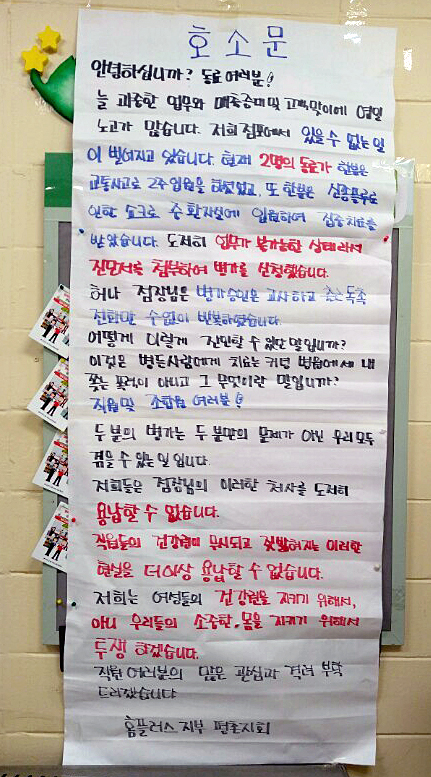 호소문
안녕하십니까? 동료 여러분!
늘 과중한 업무와 매출증대 및 고객맞이에 연일
노고가 많습니다. 저희 점포에서 있을 수 없는 일
이 벌어지고 있습니다. 현재 2명의 동료가 한분은
교통사고로 2주 입원을 하셨었고, 또 한분은 신종플루로
인한 쇼크로 중환자실에 입원하여 집중치료를
받았습니다. 도저히 업무가 불가능한 상태라서
진단서를 첨부하여 병가를 신청했습니다.
허나 점장님은 병가승인은 고사하고 출근독촉
전화만 수없이 반복하였습니다.
어떻게 이렇게 잔인할 수 있단 말입니까?
이것은 병든사람에게 치료는 커녕 병원에서 내
쫓는 꼴이 아니고 그 무엇이란 말입니까?
직원및 조합원 여러분!
두분의 병가는 두분만의 문제가 아닌 우리모두
겪을 수 있는 일입니다.
저희들은 점장님의 이러한 처사를 도저히
용납할 수 없습니다.
직원들의 건강권이 무시되고 짓밟혀지는 이러한
현실을 더이상 용납할 수 없습니다.
저희는 여성들의 건강권을 지키기 위해서,
아니 우리들의 소중한 몸을 지키기 위해서
투쟁 하겠습니다.
직원여러분의 많은 관심과 격려 부탁
드리겠습니다
홈플러스지부 지회